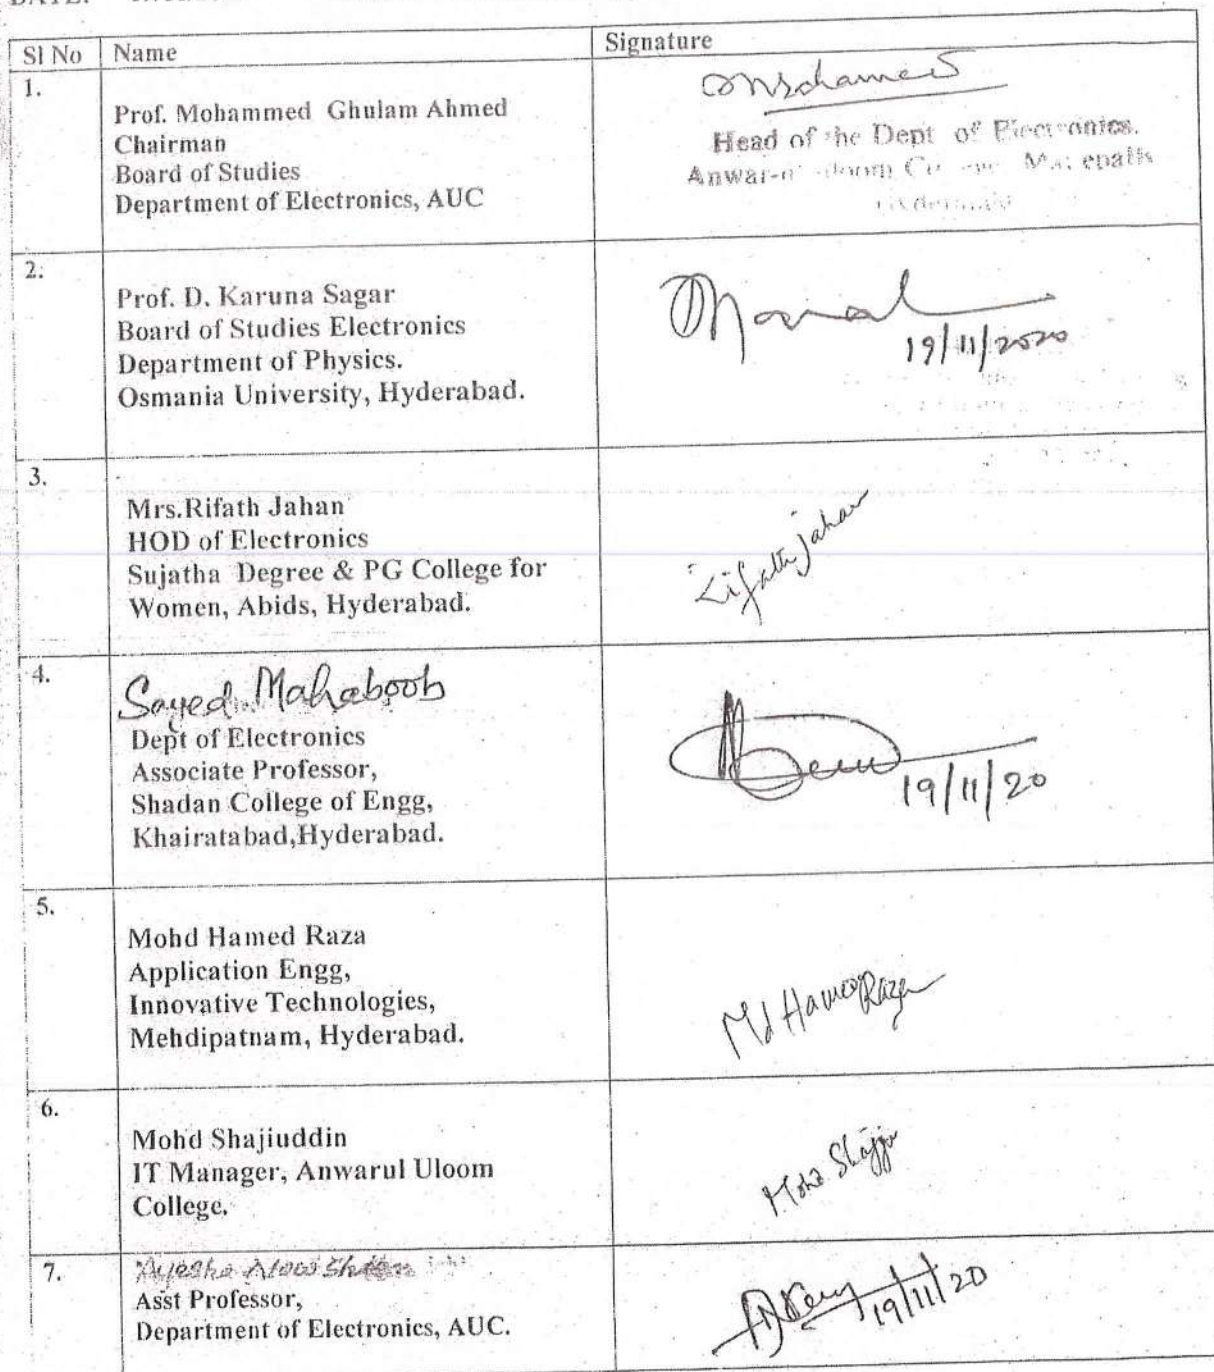 DATE:
Sl No Name Signature
1.
Prof. Mohammed Ghulam Ahmed
Chairman
Board of Studies
Department of Electronics, AUC
Head of the Dept of Electronics.
2.
Prof. D. Karuna Sagar
Board of Studies Electronics
Department of Physics.
Osmania University, Hyderabad.
19/11/2020
3.
Mrs.Rifath Jahan
HOD of Electronics
Sujatha Degree & PG College for
Women, Abids, Hyderabad.
Rifath jahan
4.
Sayed Mahaboob
Dept of Electronics
Associate Professor,
Shadan College of Engg,
Khairatabad,Hyderabad.
19/11/20
5.
Mohd Hamed Raza
Application Engg,
Innovative Technologies,
Mehdipatnam, Hyderabad.
Md Hamed Raza
6.
Mohd Shajiuddin
IT Manager, Anwarul Uloom
College.
Mohd
7.
Ayesha
Asst Professor,
Department of Electronics, AUC.
19/11/20